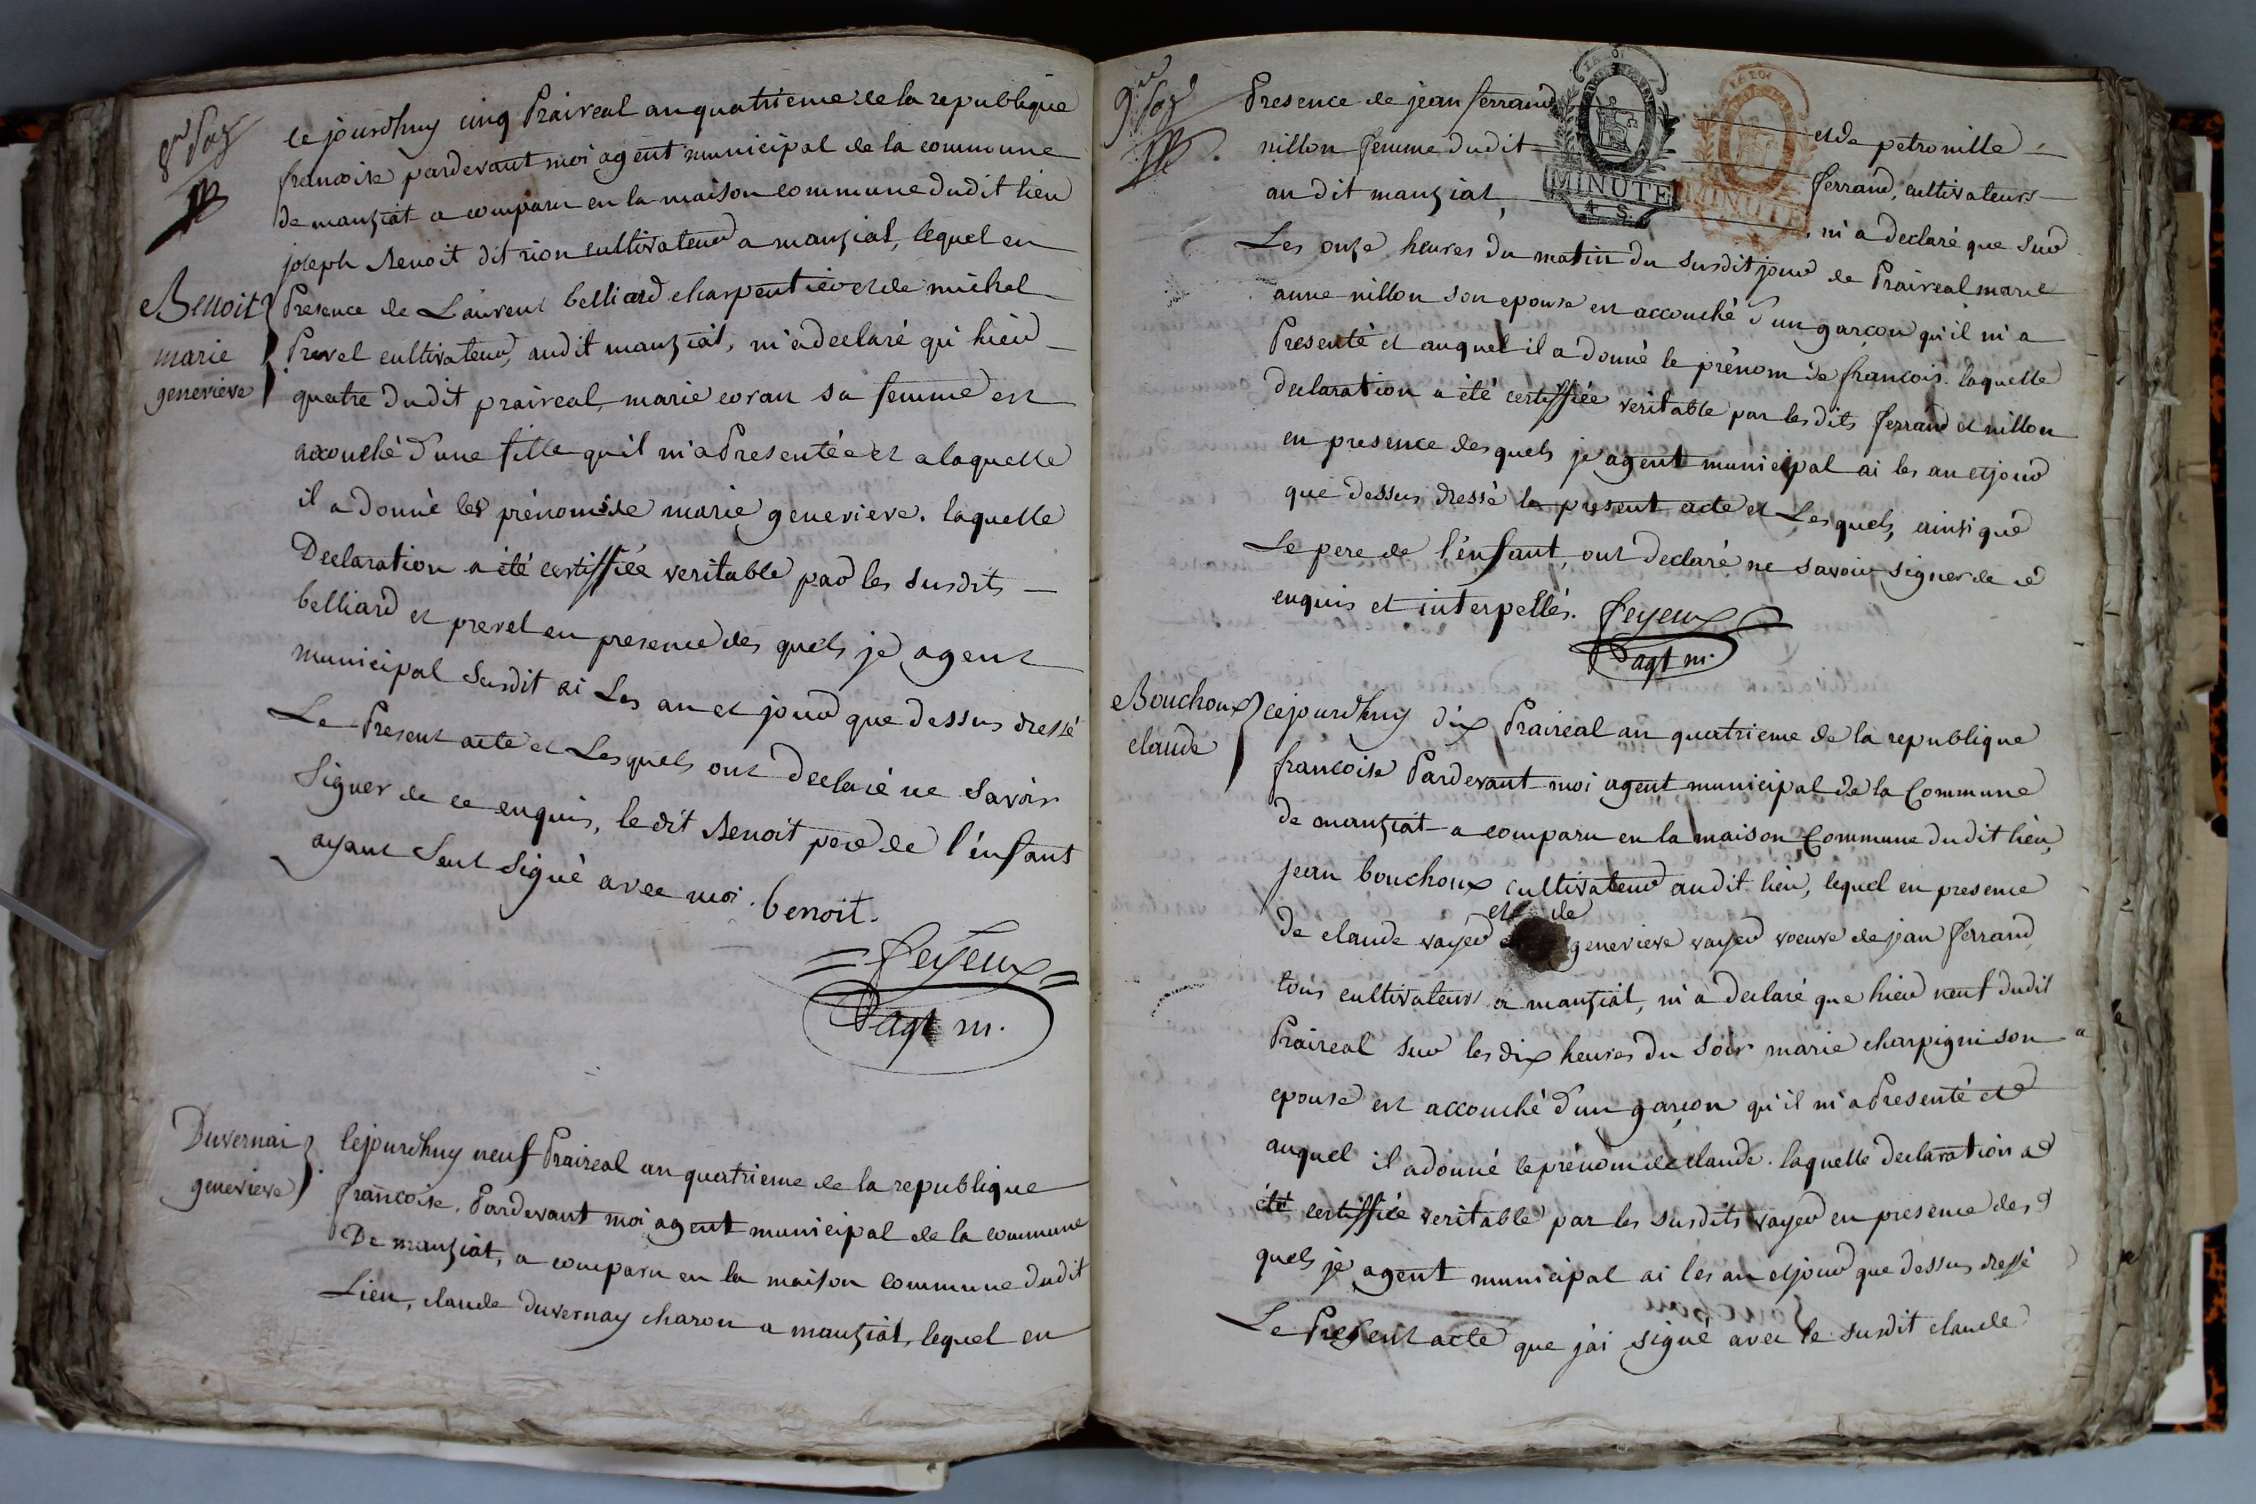 8.me pag
le jourdhuy cinq Praireal an quatrieme de la republique
francoise pardevant moi agent municipal de la commune
de manziat a comparu en la maison commune dudit lieu
joseph Benoit dit rion cultivateur a manziat, lequel en
Benoit
marie
genevieve
Presence de Laurent belliard charpentier et de michel
Prevel cultivateur, audit manziat, m'a declaré qu'hier
quatre dudit praireal, marie coran sa femme est
accouché d'une fille qu'il m'a Presentée et a laquelle
il a donné les prénoms de marie genevieve. laquelle
Declaration a été certiffiée veritable par les susdits
belliard et prevel en presence des quels je agent
municipal susdit ai Les an et jour que dessus dressé
Le Present acte et Lesquels ont declaré ne savoir
signer de ce enquis, le dit Benoit pere de l'énfant
ayant seul signé avec moi. benoit.
feyeux
agt m.
Duvernai
genevieve
lejourdhuy neuf Praireal an quatrieme de la republique
francoise. Pardevant moi agent municipal de la commune
De manziat, a comparu en la maison commune dudit
Lieu, claude Duvernay charon a manziat, lequel en
9.me pag
Presence de jean ferrand et de petronille
nillon femme dudit ferrand, cultivateurs
au dit manziat, m'a declaré que sur
MINUTE
4 S.
MINUTE
Les onze heures du matin du susdit jour de Praireal marie
anne nillon son epouse est accouché d'un garçon qu'il m'a
Presenté et auquel il a donné le prénom de francois. laquelle
declaration a été certiffiée veritable par lesdits ferrand et nillon
en presence desquels je agent municipal ai les an et jour
que dessus dressé le present acte et Lesquels, ainsi que
Le pere de l'énfant, ont declaré ne savoir signer de ce
enquis et interpellés. feyeux
agt m.
Bouchoux
claude
cejourdhuy dix Praireal an quatrieme de la republique
francoise Pardevant moi agent municipal de la Commune
de manziat a comparu en la maison Commune dudit lieu,
jean bouchoux cultivateur audit lieu, lequel en presence
de claude vayer et de genevieve vayer voeuve de jean ferrand
tous cultivateurs a manziat, m'a declaré que hier neuf dudit
Praireal sur les dix heures du soir marie charpigni son
epouse est accouché d'un garçon qu'il m'a Presenté et
auquel il a donné le prénom de claude. laquelle declaration a
été certiffiée veritable par les susdits vayer en presence des
quels je agent municipal ai les an et jour que dessus dressé
Le Present acte que j'ai signé avec le susdit claude